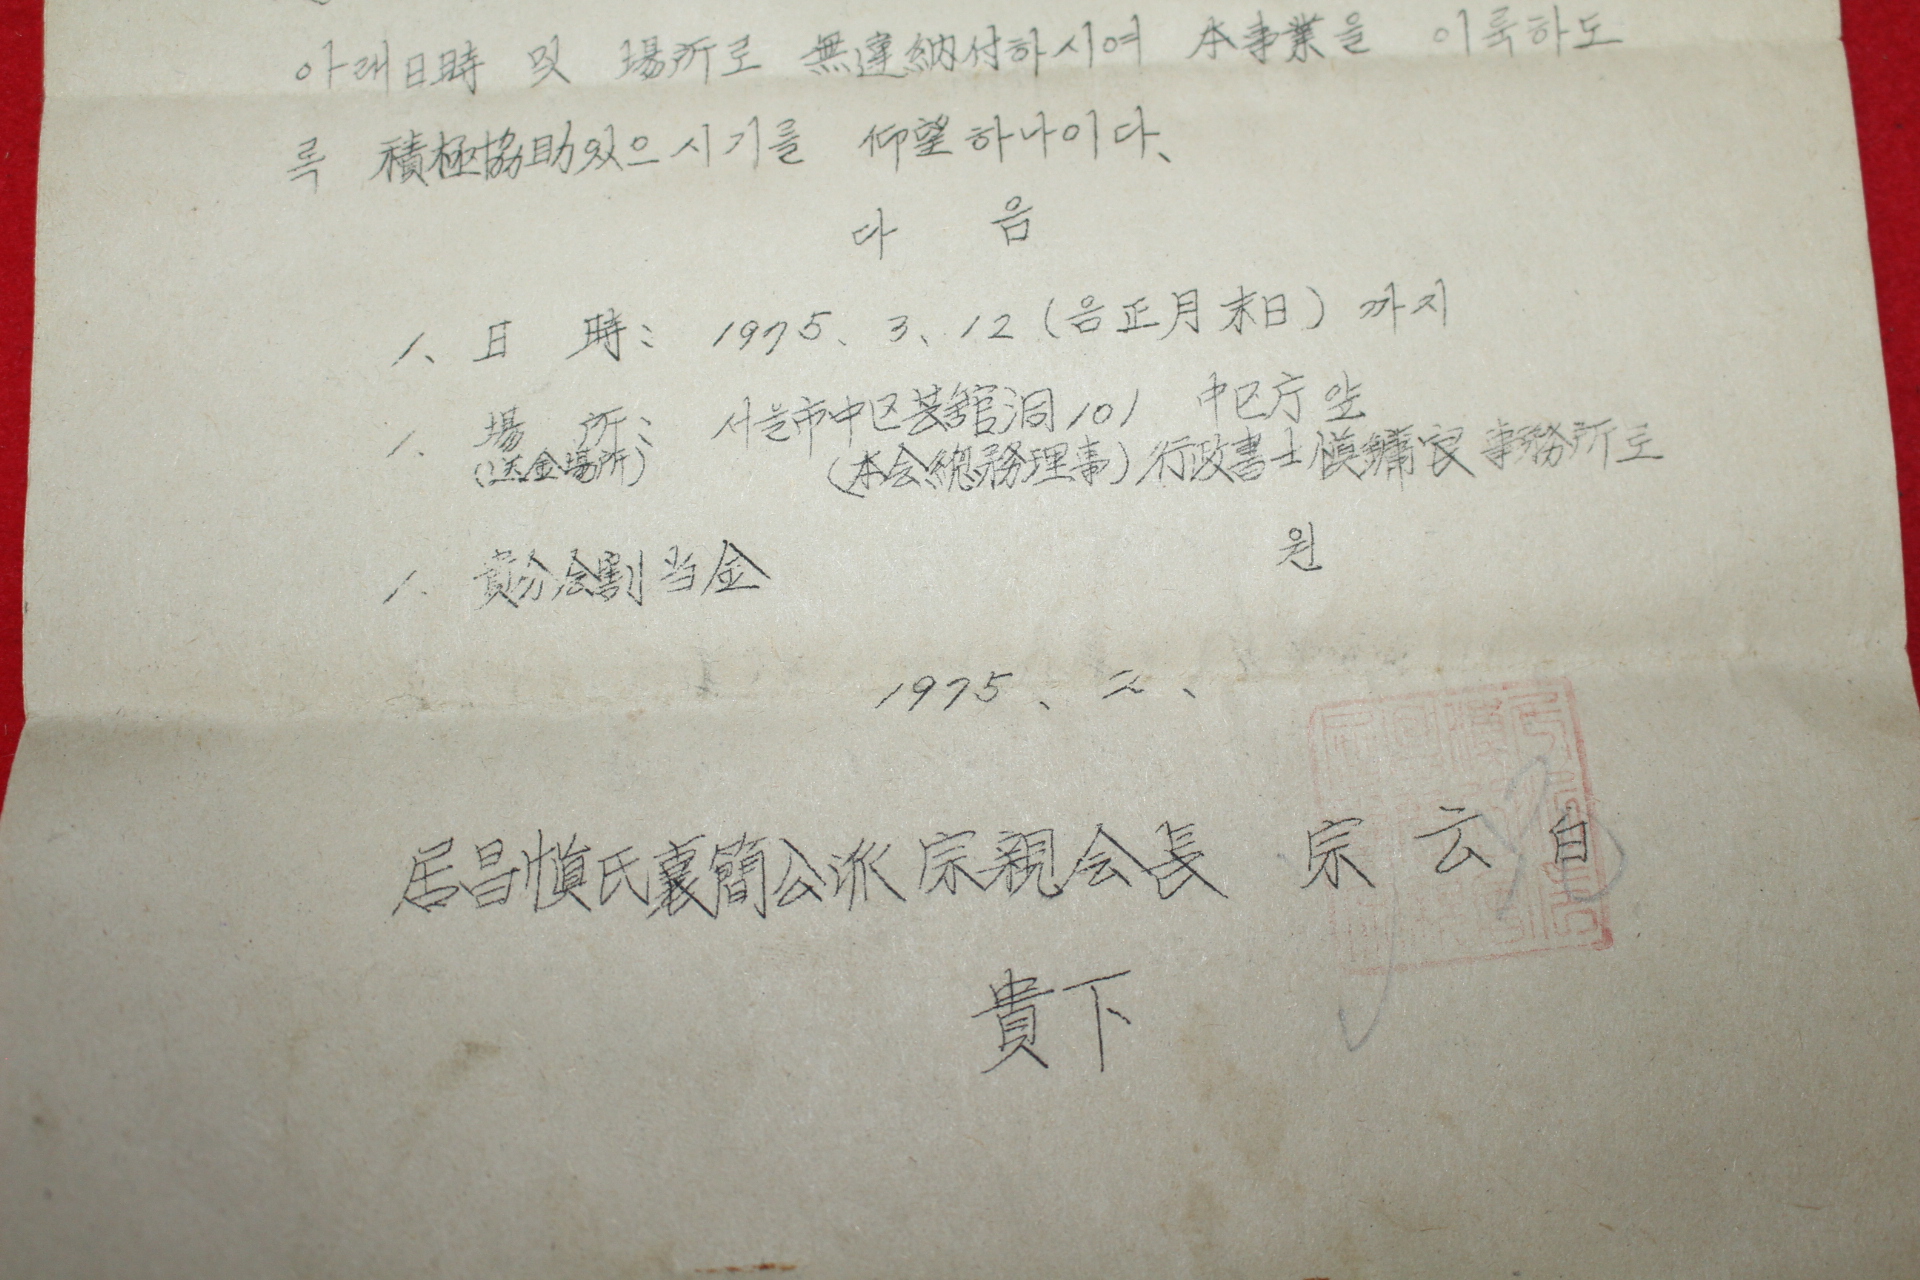 아래日時 및 場所로 無違納付하시여 本事業을 이룩하도
록 積極協助있으시기를 仰望하나이다、
다 음
1、日 時: 1975、3、12 (음正月末日) 까지
1、場 所: 서울市中区 101 中区庁앞
(送金場所) (本会總務理事) 行政書士 慎鏞 事務所로
1、貴分会割当金 원
1975、二、
居昌愼氏襄簡公派宗親会長 宗云 白
貴下